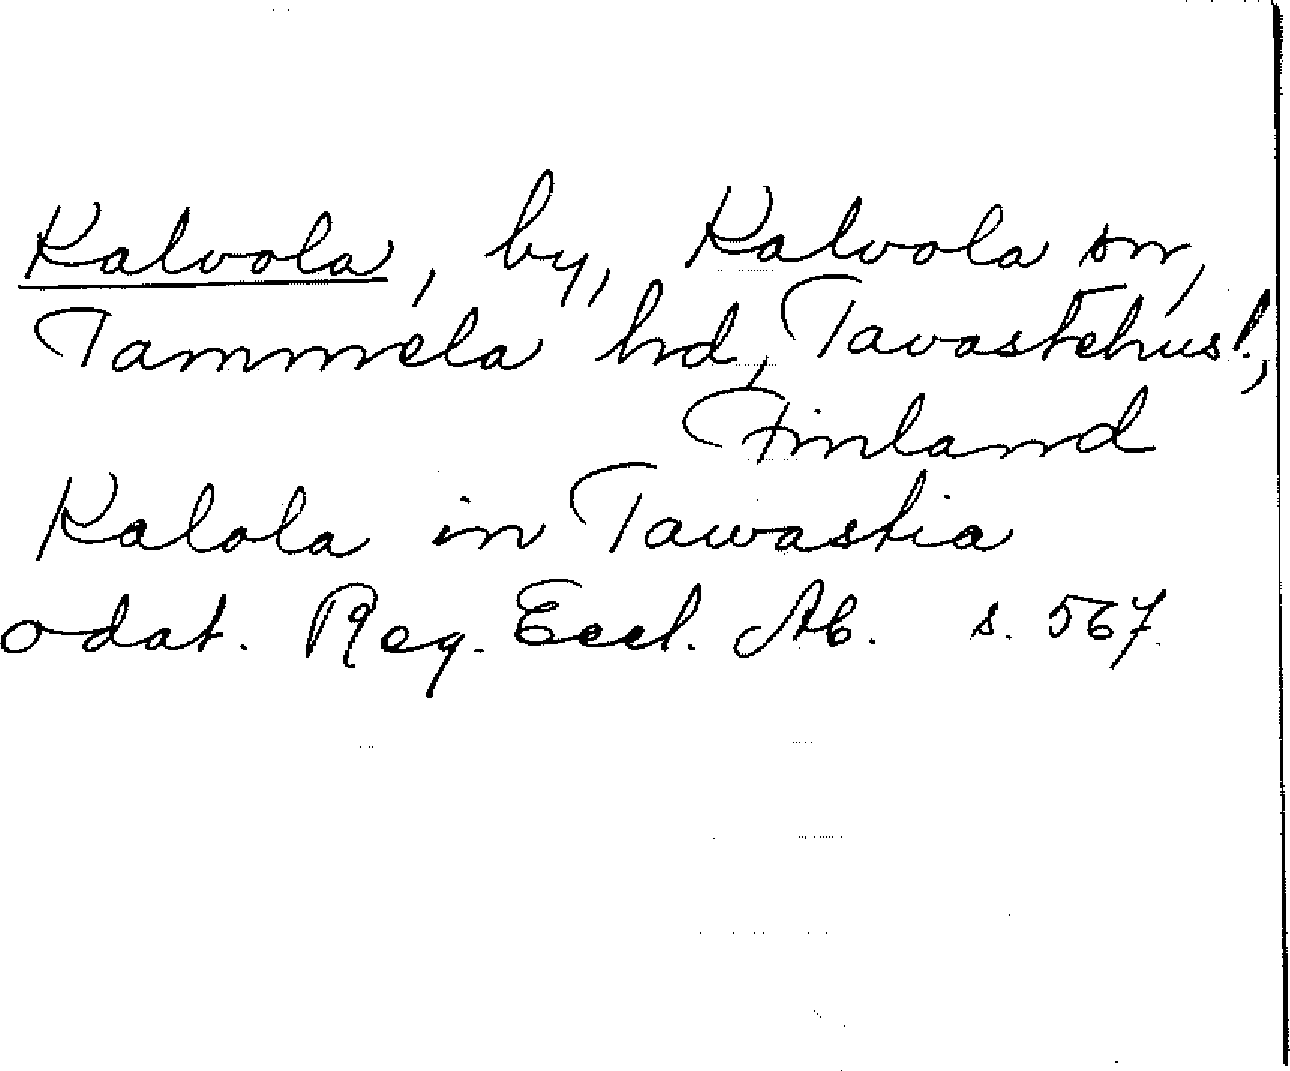 Kalvola, by, Kalvola sn,
Tammela hd, Tavastehus l.,
Finland
Kalola in Tawastia
odat. Reg. Eccl. Ab. s. 567.